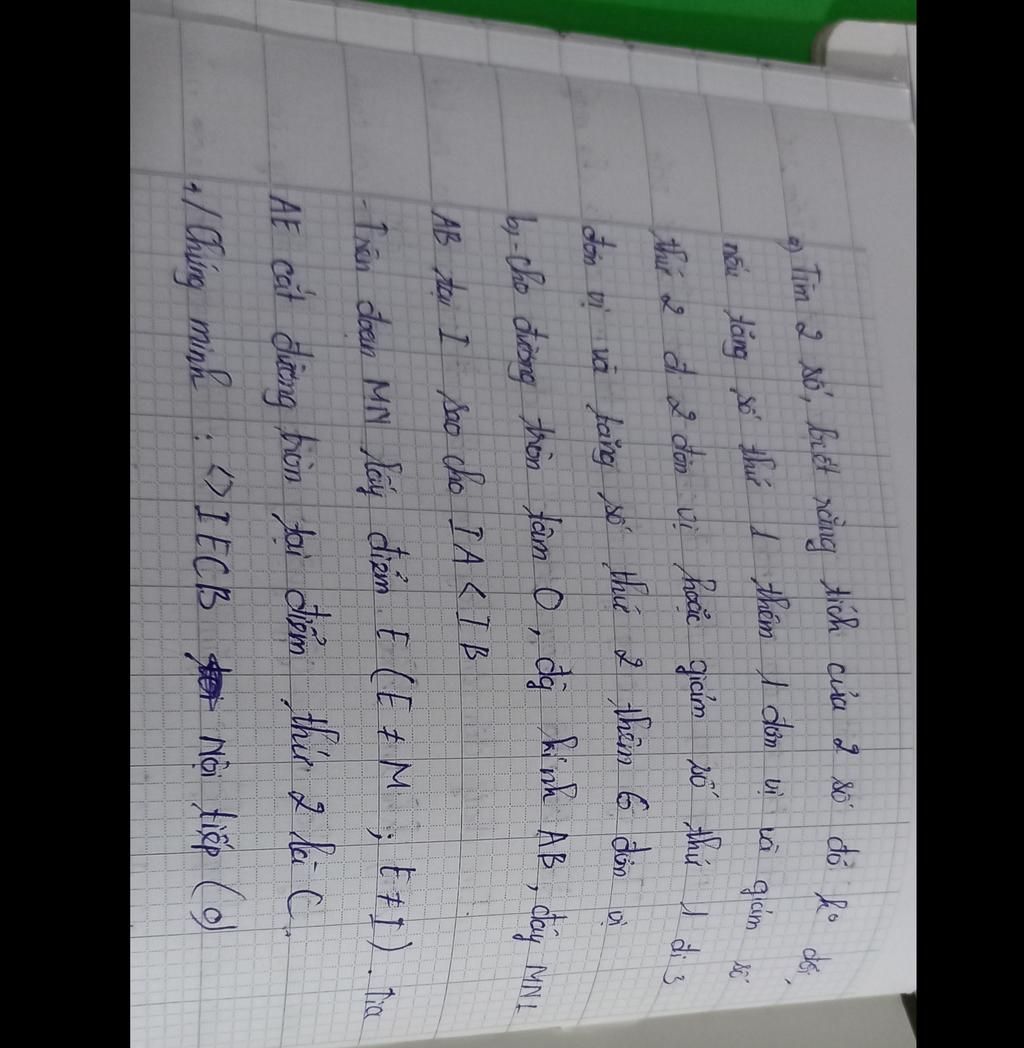 a) Tìm 2 số, biết rằng tích của 2 số đó ko đổi,
nếu tăng số thứ 1 thêm 1 đơn vị và giảm số
thứ 2 đi 2 đơn vị hoặc giảm số thứ 1 đi 3
đơn vị và tăng số thứ 2 thêm 6 đơn vị
b, - cho đường tròn tâm O, đg kính AB, dây MN⊥
AB tại I sao cho IA < IB
- Trên đoạn MN lấy điểm E (E ≠ M ; E ≠ I). Tia
AE cắt đường tròn tại điểm thứ 2 là C.
+/ Chứng minh : ◇ IECB Nội tiếp (o)